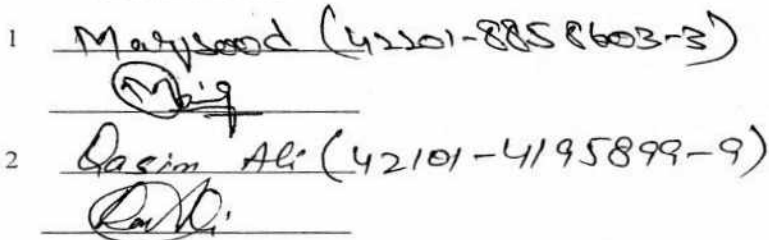 1 Maqsood (42201-8858603-3)
2 Qasim Ali (42101-4195899-9)